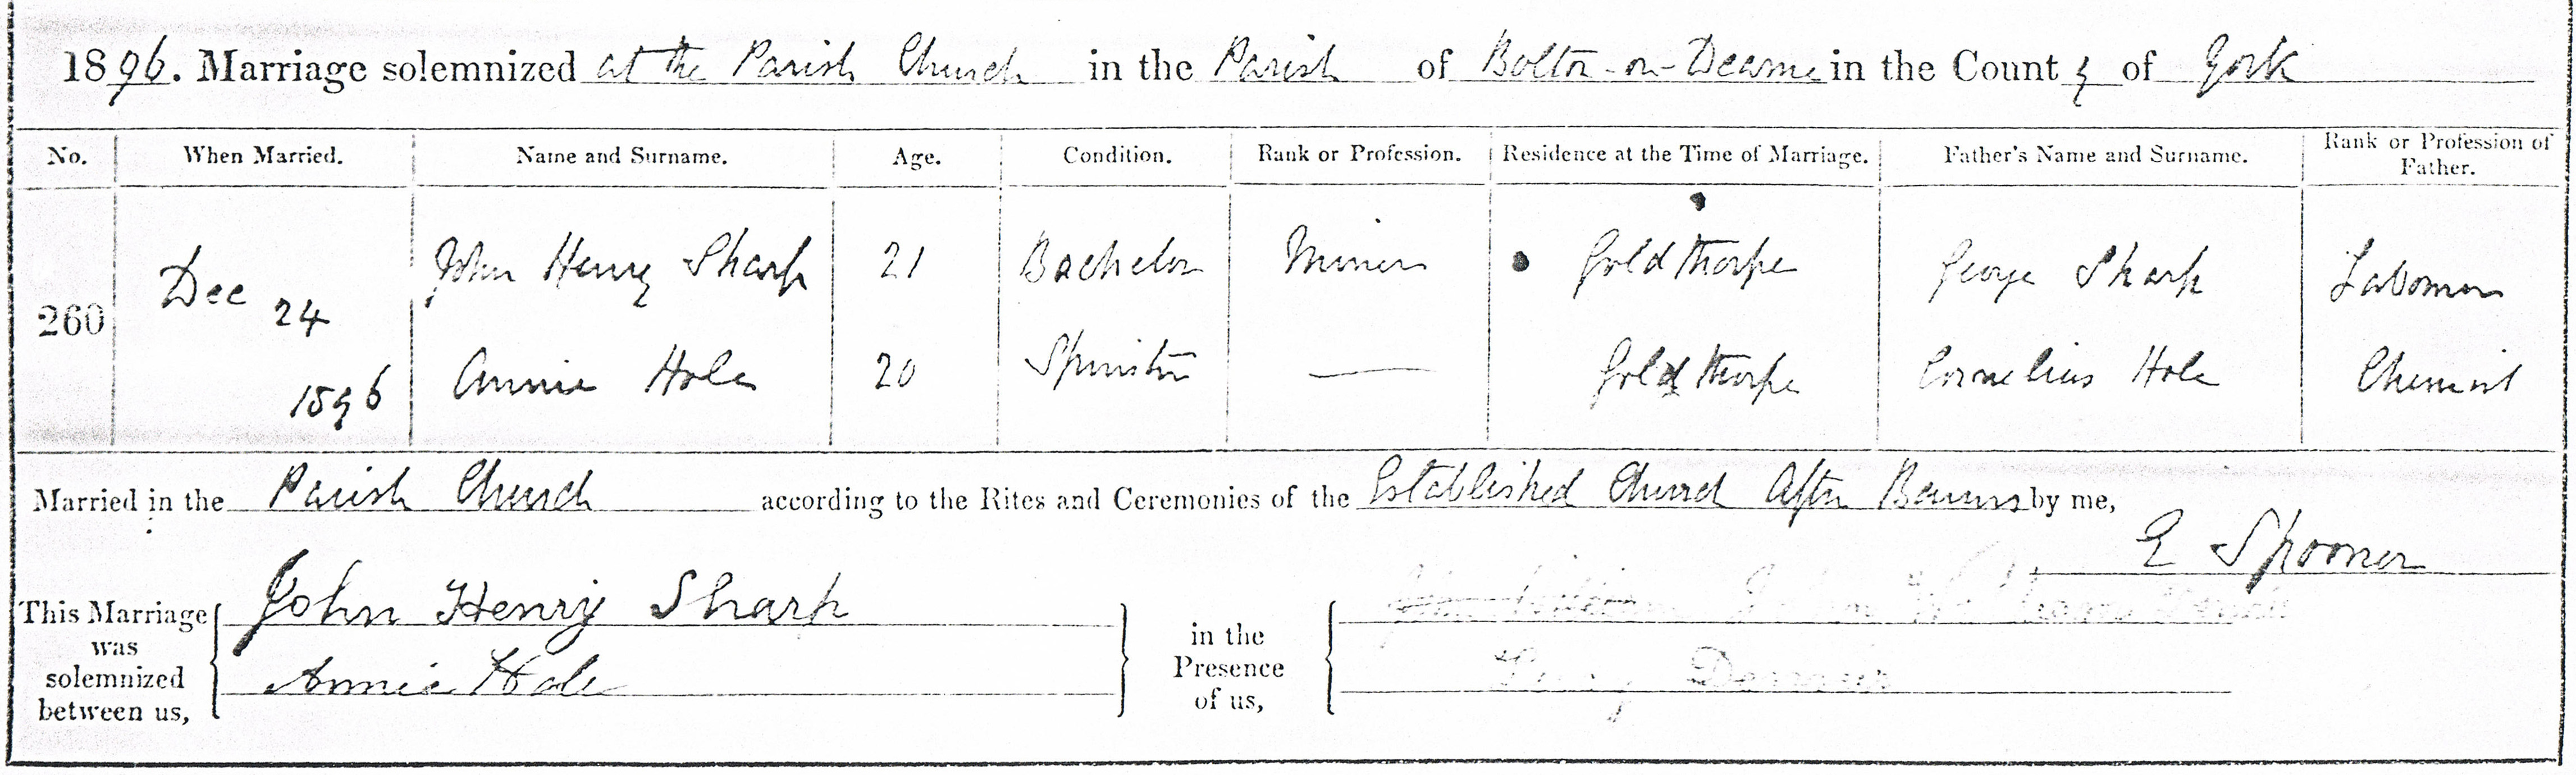 1896. Marriage solemnized at the Parish Church in the Parish of Bolton-on-Dearne in the County of York
No. When Married. Name and Surname. Age. Condition. Rank or Profession. Residence at the Time of Marriage. Father's Name and Surname. Rank or Profession of Father.
260 Dec 24 1896
John Henry Sharp 21 Bachelor Miner Goldthorpe George Sharp Labourer
Annie Hole 20 Spinster — Goldthorpe Cornelius Hole Chemist
Married in the Parish Church according to the Rites and Ceremonies of the Established Church After Banns by me,
E Spooner
This Marriage was solemnized between us,
John Henry Sharp
Annie Hole
in the Presence of us,
John William